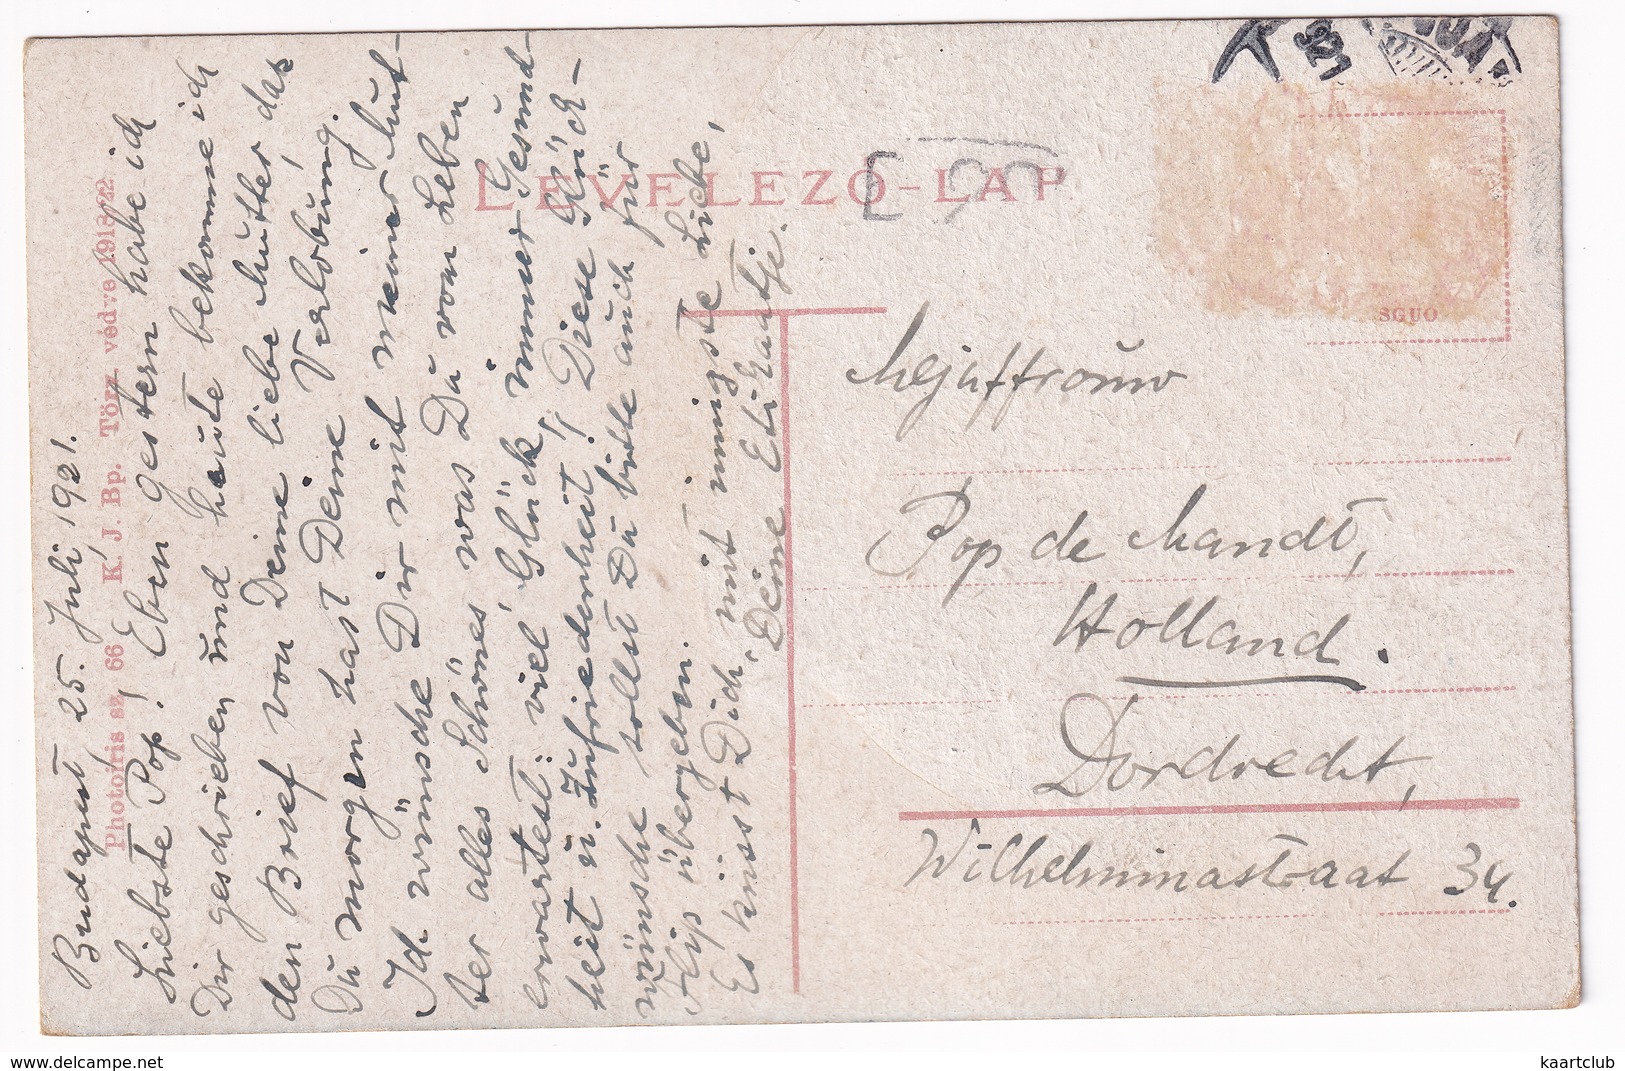 LEVELEZŐ-LAP
E 90
921
SGUO
Photoiris sz. 66 K. J. Bp. Törv. védve 1918/22
Budapest, 25. Juli, 1921.
Liebste Pop! Eben gestern habe ich
Dir geschrieben, und heute bekomme ich
den Brief von Deine liebe Mutter, das
Du morgen hast Deine Verlobung.
Ich wünsche Dir mit meiner Mut-
ter alles Schönes, was Du vom Leben
erwartest: viel Glück, immer Gesund-
heit u. Zufriedenheit!! Diese Glück-
wünsche sollst Du bitte auch für
Flip übergeben.
Es küsst Dich, mit innigste Liebe,
Deine Eti
Mejuffrouw
Pop de Mandt,
Holland.
Dordrecht,
Wilhelminastraat 34.
kaartclub